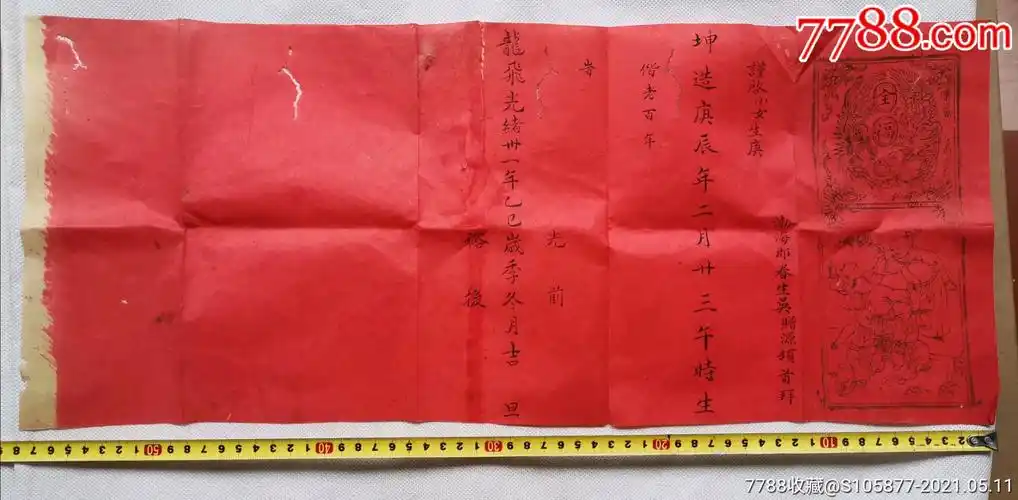 7788.com
全福
渤海郡眷生吳贈源頓首拜
謹啟小女生庚
坤造庚辰年二月廿三午時生
偕老百年
光前
龍飛光緒卅一年乙巳歲季冬月吉旦
裕後
7788收藏@S105877-2021.05.11